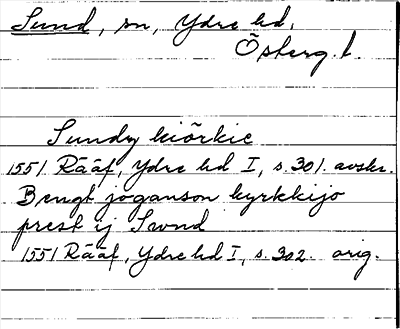 Sund, sn, Ydre hd,
Österg. l.
Sundz kiörkie
1551 Rääf, Ydre hd I, s. 301. avskr.
Bengt joganson kyrkkijo
prest ij Swnd
1551 Rääf, Ydre hd I, s. 302. orig.